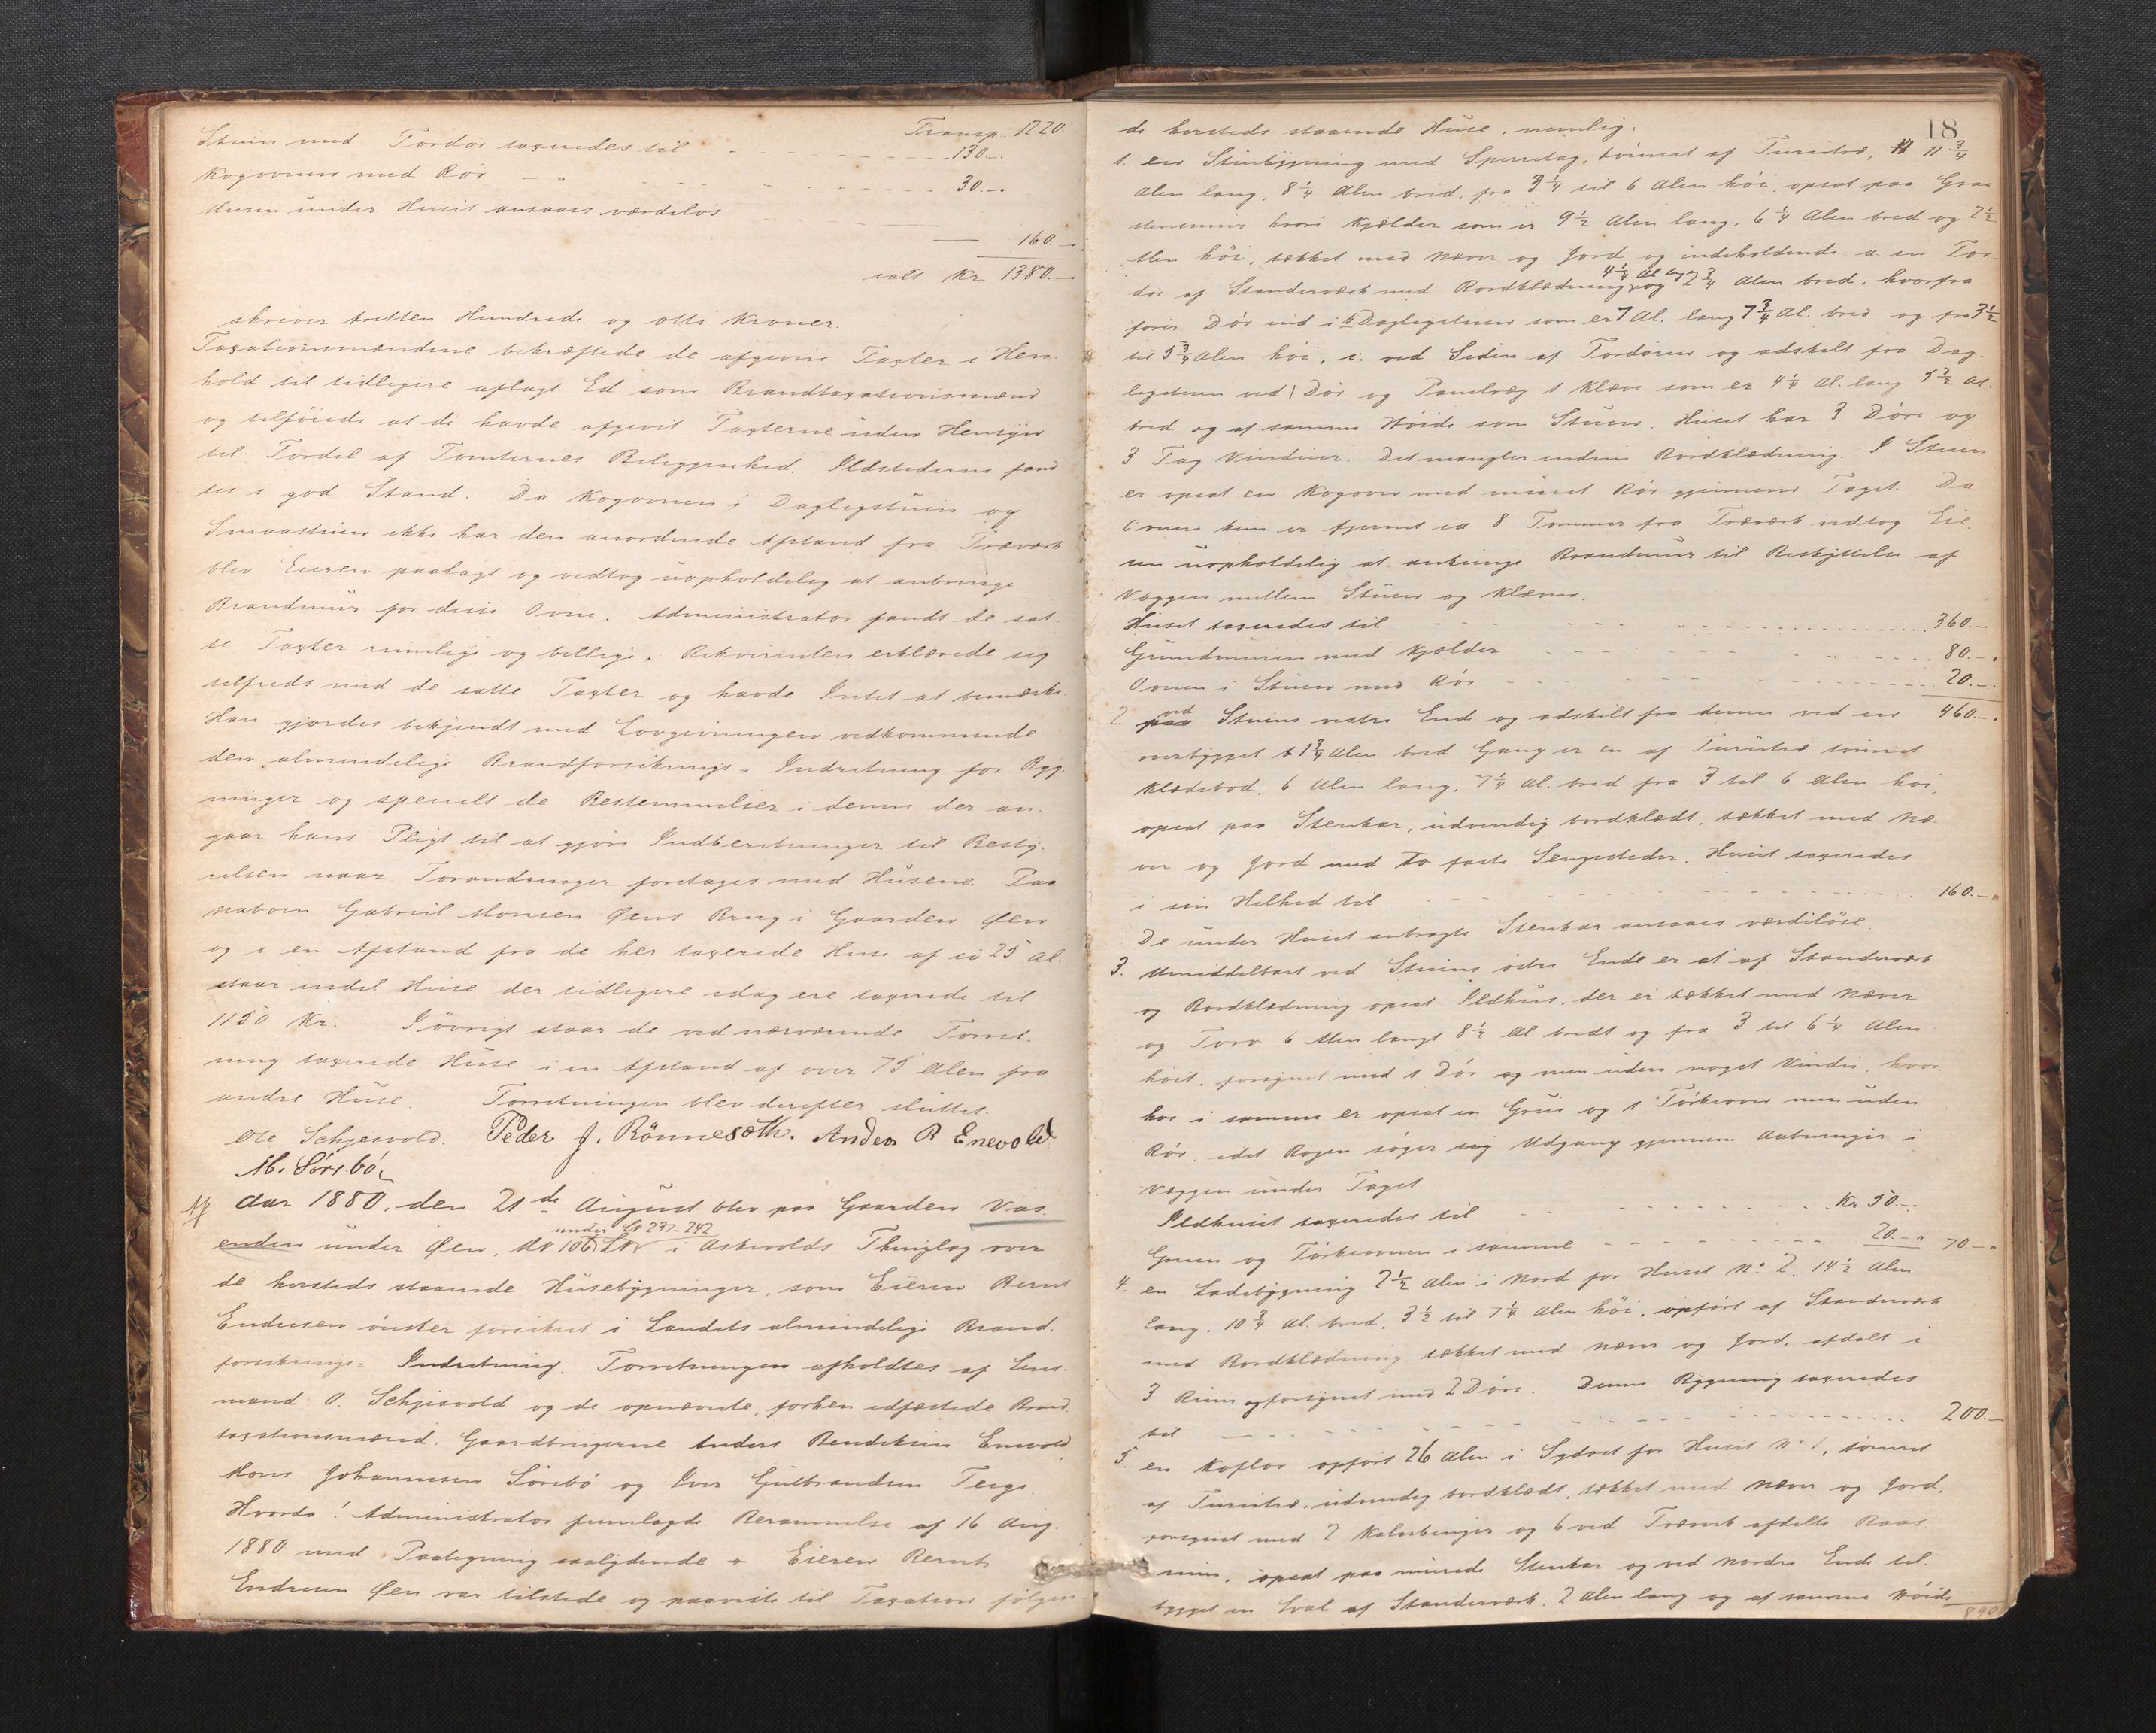 Transp. 1220.-
Stuen med Fordør taxeredes til 130.-
Kogovnen med Rør - " 30.-
Muren under Huset ansaaes værdeløs
160.-
ialt Kr. 1380.-
skriver tretten Hundrede og otti Kroner.
Taxationsmændene bekræftede de afgivne Taxter i Hen-
hold til tidligere aflagt Ed som Brandtaxationsmænd
og tilføiede at de havde afgivet Taxterne uden Hensyn
til Fordel af Tomternes Beliggenhed. Ildstederne fand
tes i god Stand. Da Kogovnen i Dagligstuen og
Smaastuen ikke har den anordnede Afstand fra Træværk
blev Eieren paalagt og vedtog uopholdelig at anbringe
Brandmur for disse Ovne. Administrator fandt de sat-
te Taxter rimelige og billige. Rekvirenten erklærede sig
tilfreds med de satte Taxter og havde Intet at bemærke.
Han gjordes bekjendt med Lovgivningen vedkommende
den almindelige Brandforsikrings-Indretning for Byg-
ninger og specielt de Bestemmelser i denne der an-
gaar hans Pligt til at gjøre Indberetninger til Besty-
relsen naar Forandringer foretages med Husene. Paa
naboen Gabriel Monsen Øens Brug i Gaarden Øen
og i en Afstand fra de her taxerede Huse af ca 25 Al.
staar endel Huse der tidligere idag ere taxerede til
1150 Kr. Iøvrigt staar de ved nærværende Forret-
ning taxerede Huse i en Afstand af over 75 Alen fra
andre Huse. Forretningen blev derefter sluttet.
Ole Schjesvold. Peder J. Rönnesæth. Anders B Enevold
M. Sørebø
Aar 1880, den 21de August blev paa Gaarden Vas-
under Lb 237-242
enden under Øen, M No 106 i Askvolds Thinglag over
de hersteds staaende Husebygninger, som Eieren Bernt
Endresen ønsker forsikret i Landets almindelige Brand-
forsikrings-Indretning. Forretningen afholdtes af Lens-
mand O. Schjesvold og de opnævnte, forhen edfæstede Brand-
taxationsmænd, Gaardbrugerne Anders Bendiksen Enevold
Mons Johannesen Sørebø og Iver Gulbrandsen Teige.
Hvorda! Administrator fremlagde Berammelse af 16 Aug.
1880 med Paategning saalydende Eieren Bernt
Endresen Øen var tilstede og paaviste til Taxation følgen-
18
de hersteds staaende Huse, nemlig:
1. en Stuebygning med Sperretag, tømret af Furutræ, 11 3/4
Alen lang, 8 1/4 Alen bred, fra 3 1/4 til 6 Alen høi, opsat paa Graa
stensmur hvori Kjælder som er 9 1/2 Alen lang, 6 1/4 Alen bred og 2 1/2
Alen høi, tækket med Næver og Jord og indeholdende a. en For-
4 1/4 Al lang
dør af Standerværk med Bordklædning, og 2 3/4 Alen bred, hvorfra
fører Dør ind i b. Dagligstuen som er 7 Al. lang 7 3/4 Al. bred og fra 3 1/2
til 5 3/4 Alen høi, c. ved Siden af Fordøren og adskilt fra Dag-
ligstuen ved 1 Dør og Panelvæg 1 Kleve som er 4 1/4 Al. lang 3 1/2 Al.
bred og af samme Høide som Stuen. Huset har 3 Døre og
3 Fag Vinduer. Det mangler endnu Bordklædning. I Stuen
er opsat en Kogovn med muret Rør gjennem Taget. Da
Ovnen kun er fjernet ca 8 Tommer fra Træværk vedtog Eie-
ren uopholdelig at anbringe Brandmur til Beskyttelse af
Væggen mellem Stuen og Kleven.
Huset taxeredes til 360.-
Grundmuren med Kjælder 80.-
Ovnen i Stuen med Rør 20.-
460.-
2. ved Stuens vestre Ende og adskilt fra denne ved en
overbygget 1 3/4 Alen bred Gang er en af Furutræ tømret
Klædebod, 6 Alen lang, 7 1/4 Al. bred fra 3 til 6 Alen høi,
opsat paa Stenkar, udvendig bordklædt, tækket med Næ-
ver og Jord med to faste Sengesteder. Huset taxeredes
i sin Helhed til 160.-
De under Huset anbragte Stenkar ansaaes værdiløse.
3. Umiddelbart ved Stuens østre Ende er et af Standerværk
og Bordklædning opsat Ildhus, der er tækket med Næver
og Torv. 6 Alen langt 8 1/2 Al. bredt og fra 3 til 6 1/4 Alen
høit, forsynet med 1 Dør men uden noget Vindu, hvor
hos i samme er opsat en Grue og 1 Tørkeovn men uden
Rør, idet Røgen søger sig Udgang gjennem Aabninger i
Væggen under Taget.
Ildhuset taxeredes til Kr 50.-
Gruen og Tørkeovnen i samme 20.- 70.-
4. en Ladebygning 2 1/2 Alen i Nord for Huset No 2. 14 1/2 Alen
lang, 10 3/4 Al. bred, 3 1/2 til 7 1/4 Alen høi, opført af Standerværk
med Bordklædning tækket med Næver og Jord, afdelt i
3 Rum og forsynet med 2 Døre. Denne Bygning taxeredes
til 200.-
5. en Koflor opført 26 Alen i Sydost for Huset No 1, tømret
af Furutræ, udvendig bordklædt, tækket med Næver og Jord,
forsynet med 2 Kalvebinger og 6 ved Træverk afdelte Baas
rum, opsat paa murede Stenkar og ved nordre Ende til-
bygget en Sval af Standerværk. 2 Alen lang og af samme Høide
890